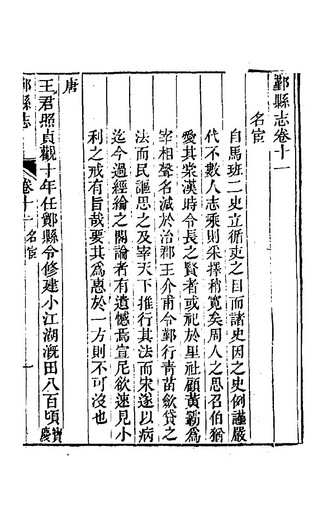 鄞縣志卷十一
名宦
自馬班二史立循吏之目而諸史因之史例謹嚴
代不數人志乘則采擇稍寬矣周人之思召伯猶
愛其棠漢時令長之賢者或祀於里社顧黃霸為
宰相聲名減於治郡王介甫令鄞行青苗斂貸之
法而民謳思之及宰天下推行其法而宋遂以病
迄今過經綸之閣論者有遺憾焉宣尼欲速見小
利之戒有旨哉要其為惠於一方則不可沒也
唐
王君照貞觀十年任鄮縣令修建小江湖溉田八百頃寶
慶
鄞縣志
卷十一
名宦
一